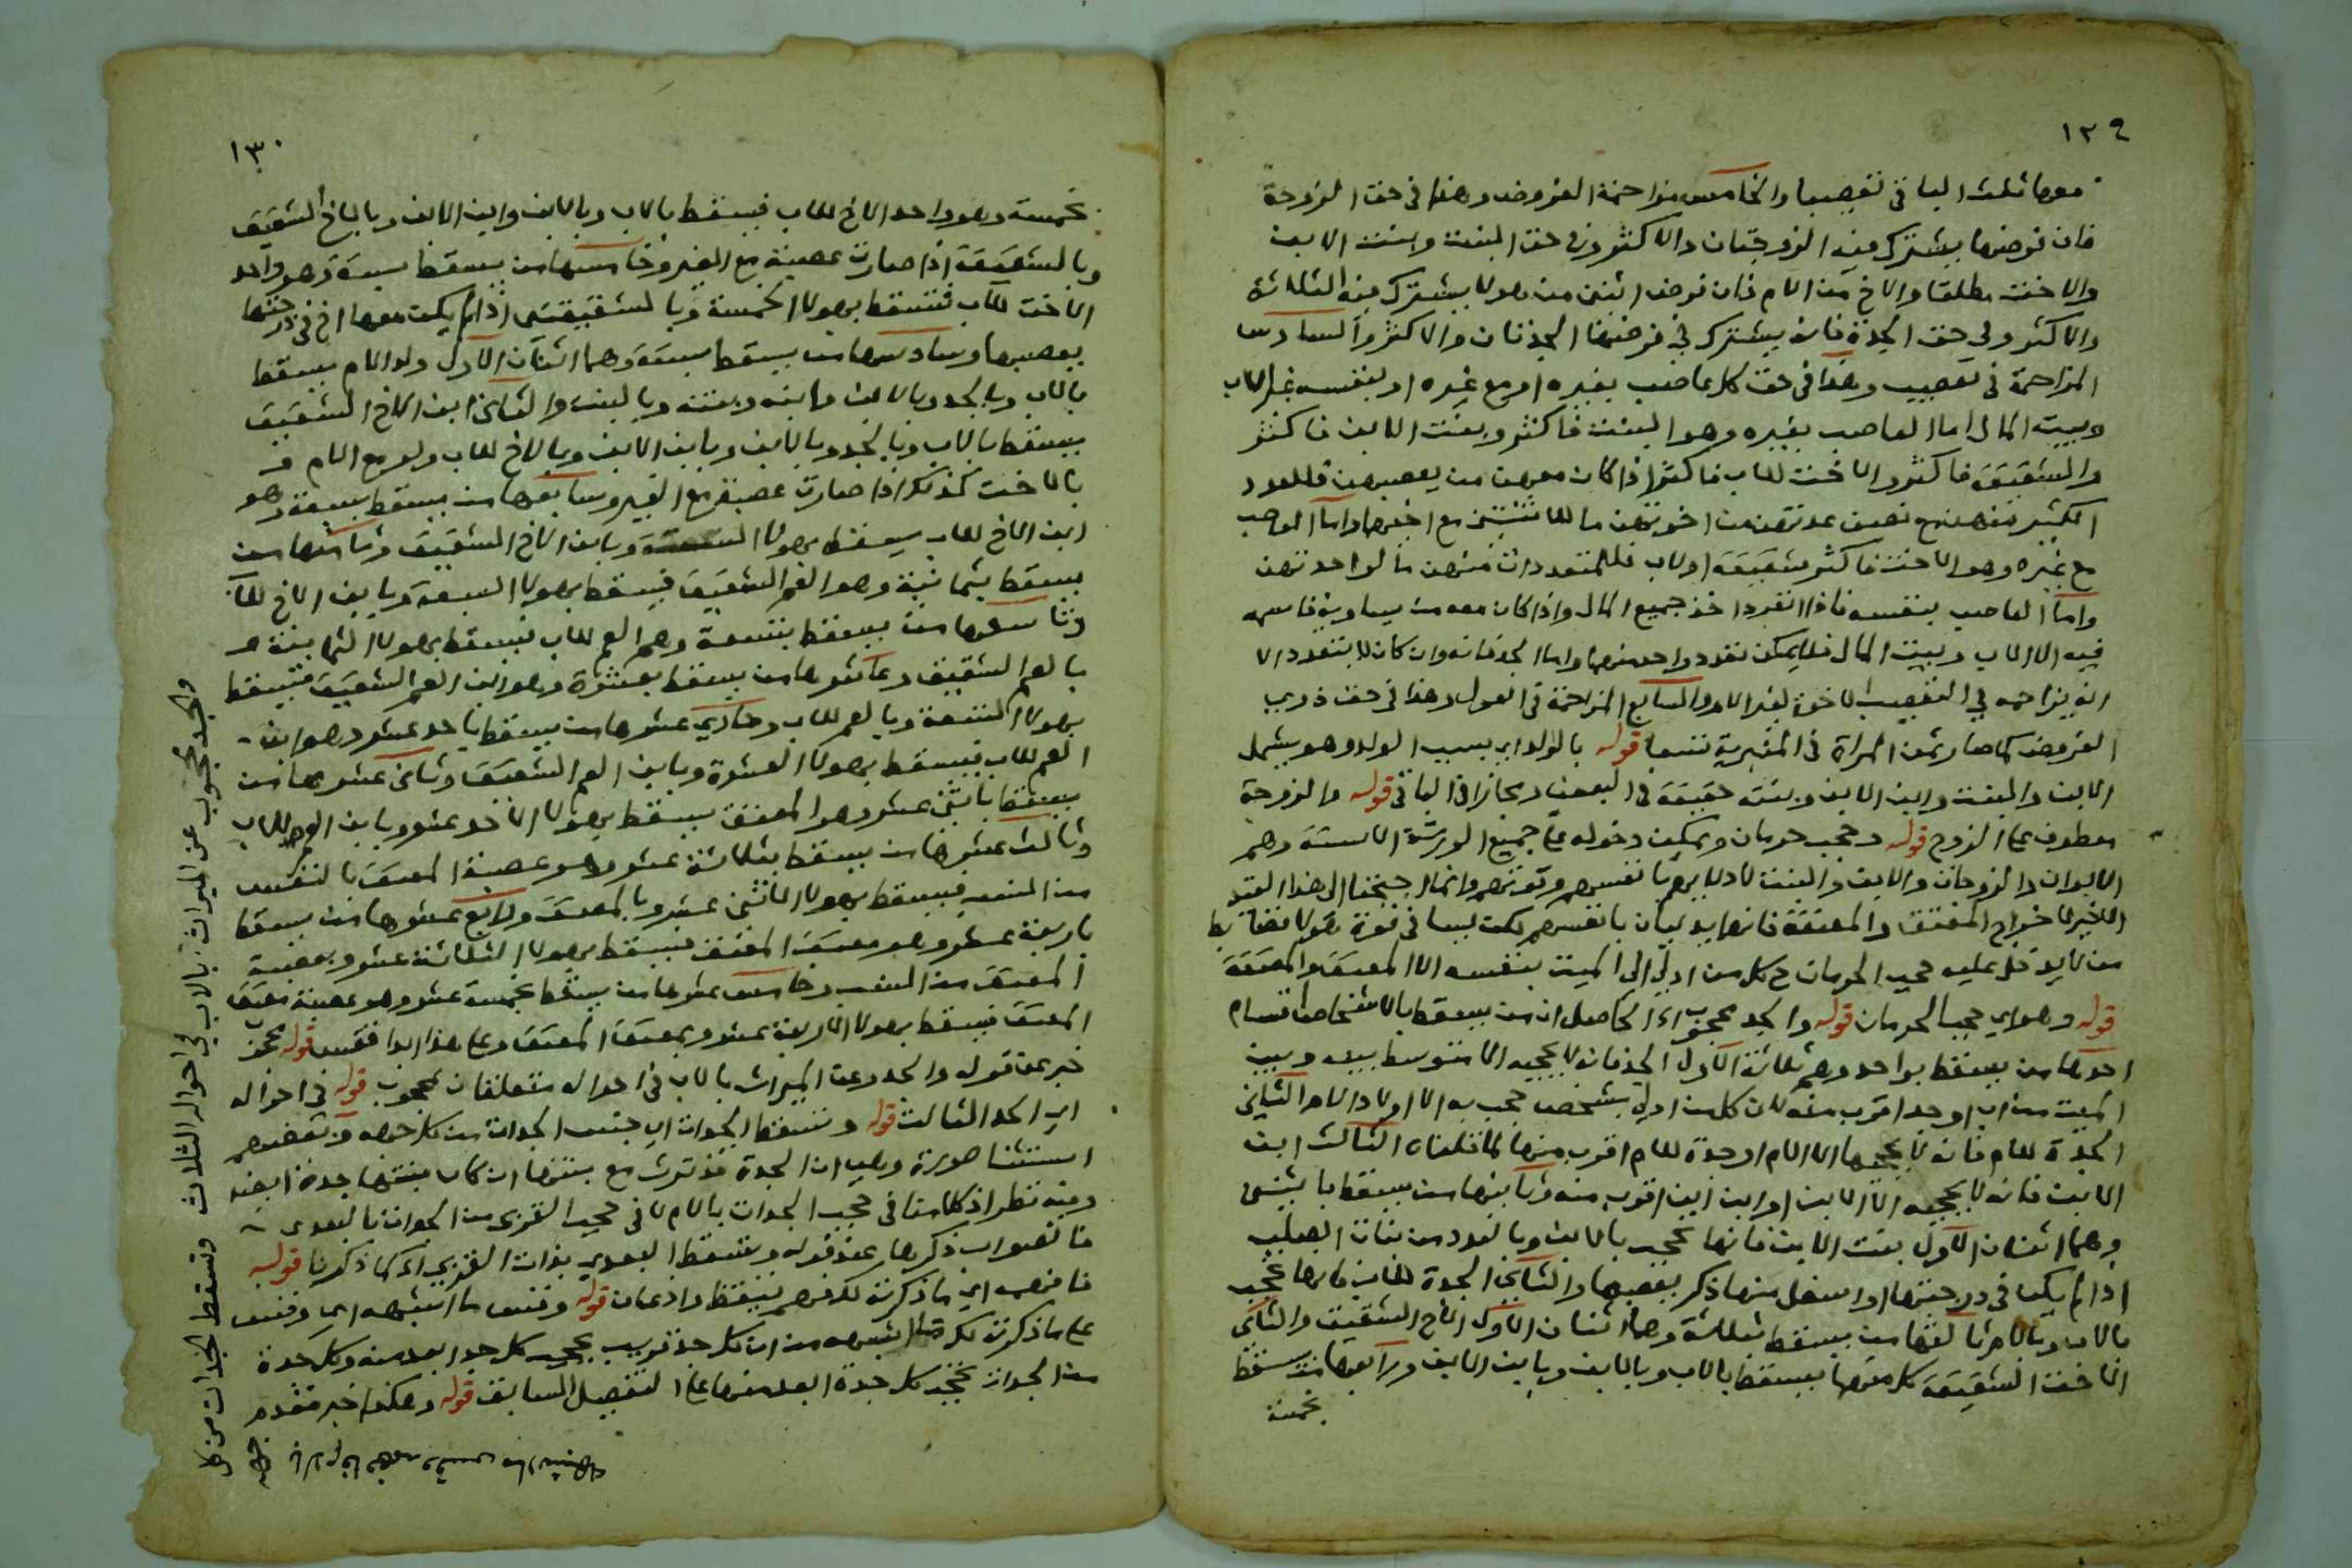 ١٢٩
معها ثلث الباقي تعصيبا والخامس مزاحمة الفروض وهذا في حق الزوجة
فان فرضها يشترك فيه الزوجتان والاكثر وفي حق البنت وبنت الابن
والاخت مطلقا والاخ من الام فان فرض اثنين من هولا يشترك فيه الثلاثة
والاكثر وفي حق الجدة فانه يشترك في فرضها الجدتان والاكثر والسادس
المزاحمة في تعصيب وهذا في حق كل عاصب بغيره او مع غيره او بنفسه غير الاب
وبيت المال اما العاصب بغيره وهو البنت فاكثر وبنت الابن فاكثر
والشقيقة فاكثر والاخت للاب فاكثر اذا كان معهن من يعصبهن فللعدد
الكثير منهن مع نصف عدتهن من اخوتهن ما للانثيين مع اخيهما واما العاصب
مع غيره وهو الاخت فاكثر شقيقة او لاب فللمتعددات منهن ما لواحدتهن
واما العاصب بنفسه فاذا انفرد اخذ جميع المال واذا كان معه من يساويه قاسمه
فيه الا الاب وبيت المال فلا يمكن تعدد واحد منهما واما الجد فانه وان كان لا يتعدد الا
انه يزاحمه في التعصيب الاخوة لغير الام والسابع المزاحمة في العول وهذا في حق ذوي
الفروض كما صار ثمن المراة في المنبرية تسعا قوله بالولد اي بسبب الولد وهو يشمل
الابن والبنت وابن الابن وبنته حقيقة في البعض ومجازا في الباقي قوله والزوجة
معطوف على الزوج قوله وحجب حرمان ويمكن دخوله على جميع الورثة الا ستة وهم
الابوان والزوجان والابن والبنت لادلايهم بانفسهم وقوتهم وانما احتجنا الى هذا القيد
الاخير لاخراج المعتق والمعتقة فانهما يدليان بانفسهم لكن ليسا في قوة هولا فضابط
من لا يدخل عليه حجب الحرمان ح كل من ادلى الى الميت بنفسه الا المعتق والمعتقة
قوله وهو اي حجب الحرمان قوله والجد محجوب اه الحاصل ان من يسقط بالاشخاص اقسام
احدها من يسقط بواحد وهم ثلاثة الاول الجد فانه لا يحجبه الا متوسط بينه وبين
الميت من اب او جد اقرب منه لان كل من ادلى بشخص حجب به الا اولاد الام الثاني
الجدة للام فانه لا يحجبها الا الام او جدة للام اقرب منها لما قلناه الثالث ابن
الابن فانه لا يحجبه الا الابن او ابن ابن اقرب منه وثانيها من يسقط باثنين
وهما اثنان الاول بنت الابن فانها تحجب بالابن وبالعدد من بنات الصلب
اذا لم يكن في درجتها او اسفل منها ذكر يعصبها والثاني الجدة للاب فانها تحجب
بالاب وبالام وثالثها من يسقط بثلاثة وهما اثنان الاول الاخ الشقيق والثاني
الاخت الشقيقة كل منهما يسقط بالاب وبالابن وبابن الابن ورابعها من يسقط
بخمسة
١٣٠
بخمسة وهو واحد الاخ للاب فيسقط بالاب وبالابن وابن الابن وبالاخ الشقيق
وبالشقيقة اذا صارت عصبة مع الغير وخامسها من يسقط بستة وهو واحد
الاخت للاب فتسقط بهولا الخمسة وبالشقيقتين اذا لم يكن معها اخ في درجتها
يعصبها وسادسها من يسقط بستة وهما اثنان الاول ولد الام يسقط
بالاب وبالجد وبالابن وابنه وبنته وبالبنت والثاني ابن الاخ الشقيق
يسقط بالاب وبالجد وبالابن وبابن الابن وبالاخ للاب ولو مع الام و
بالاخت كذلك اذا صارت عصبة مع الغير وسابعها من يسقط بسبعة وهو
ابن الاخ للاب يسقط بهولا الستة وبابن الاخ الشقيق وثامنها من
يسقط بثمانية وهو العم الشقيق فيسقط بهولا السبعة وبابن الاخ للاب
وتاسعها من يسقط بتسعة وهم العم للاب فيسقط بهولا الثمانية و
بالعم الشقيق وعاشرها من يسقط بعشرة وهو ابن العم الشقيق فيسقط
بهولا التسعة وبالعم للاب وحادي عشرها من يسقط باحد عشر وهو ابن
العم للاب فيسقط بهولا العشرة وبابن العم الشقيق وثاني عشرها من
يسقط باثني عشر وهو المعتق يسقط بهولا الاحد عشر وبابن العم للاب
وثالث عشرها من يسقط بثلاثة عشر وهو عصبة المعتق بالنفس
من النسب فيسقط بهولا الاثني عشر وبالمعتق ورابع عشرها من يسقط
باربعة عشر وهو معتق المعتق فيسقط بهولا الثلاثة عشر وبعصبة
المعتق من النسب وخامس عشرها من يسقط بخمسة عشر وهو عصبة معتق
المعتق فيسقط بهولا الاربعة عشر وبمعتق المعتق وعلى هذا ابدا فقس قوله محجوب
خبر عن قوله والجد وعن الميراث بالاب في احواله متعلقان بمحجوب قوله في احواله
اي الجد الثالث قوله وتسقط الجدات اي جنس الجدات من كل جهة وبعضهم
استثنا صورة وهي ان الجدة قد ترث مع بنتها ان كان بنتها جدة ايضا
وفيه نظر اذ كلامنا في حجب الجدات بالام لا في حجب القربى من الجدات بالبعدى
فالصواب ذكرها عند قوله وتسقط البعدى بذات القربى اه كما ذكرنا قوله
فافهم اي ما ذكرته لك فهم تيقظ واذعان قوله وقس ما اشبهه اي وقس
على ما ذكرته لك ما اشبهه من ان كل جد قريب يحجب كل جد ابعد منه وكل جدة
من الجدات تحجب كل جدة ابعد منها على التفصيل السابق قوله وهكذا خبر مقدم
والجد محجوب عن الميراث بالاب في احواله الثلاث وتسقط الجدات من كل
جهه بالام فافهمه وقس ما اشبهه